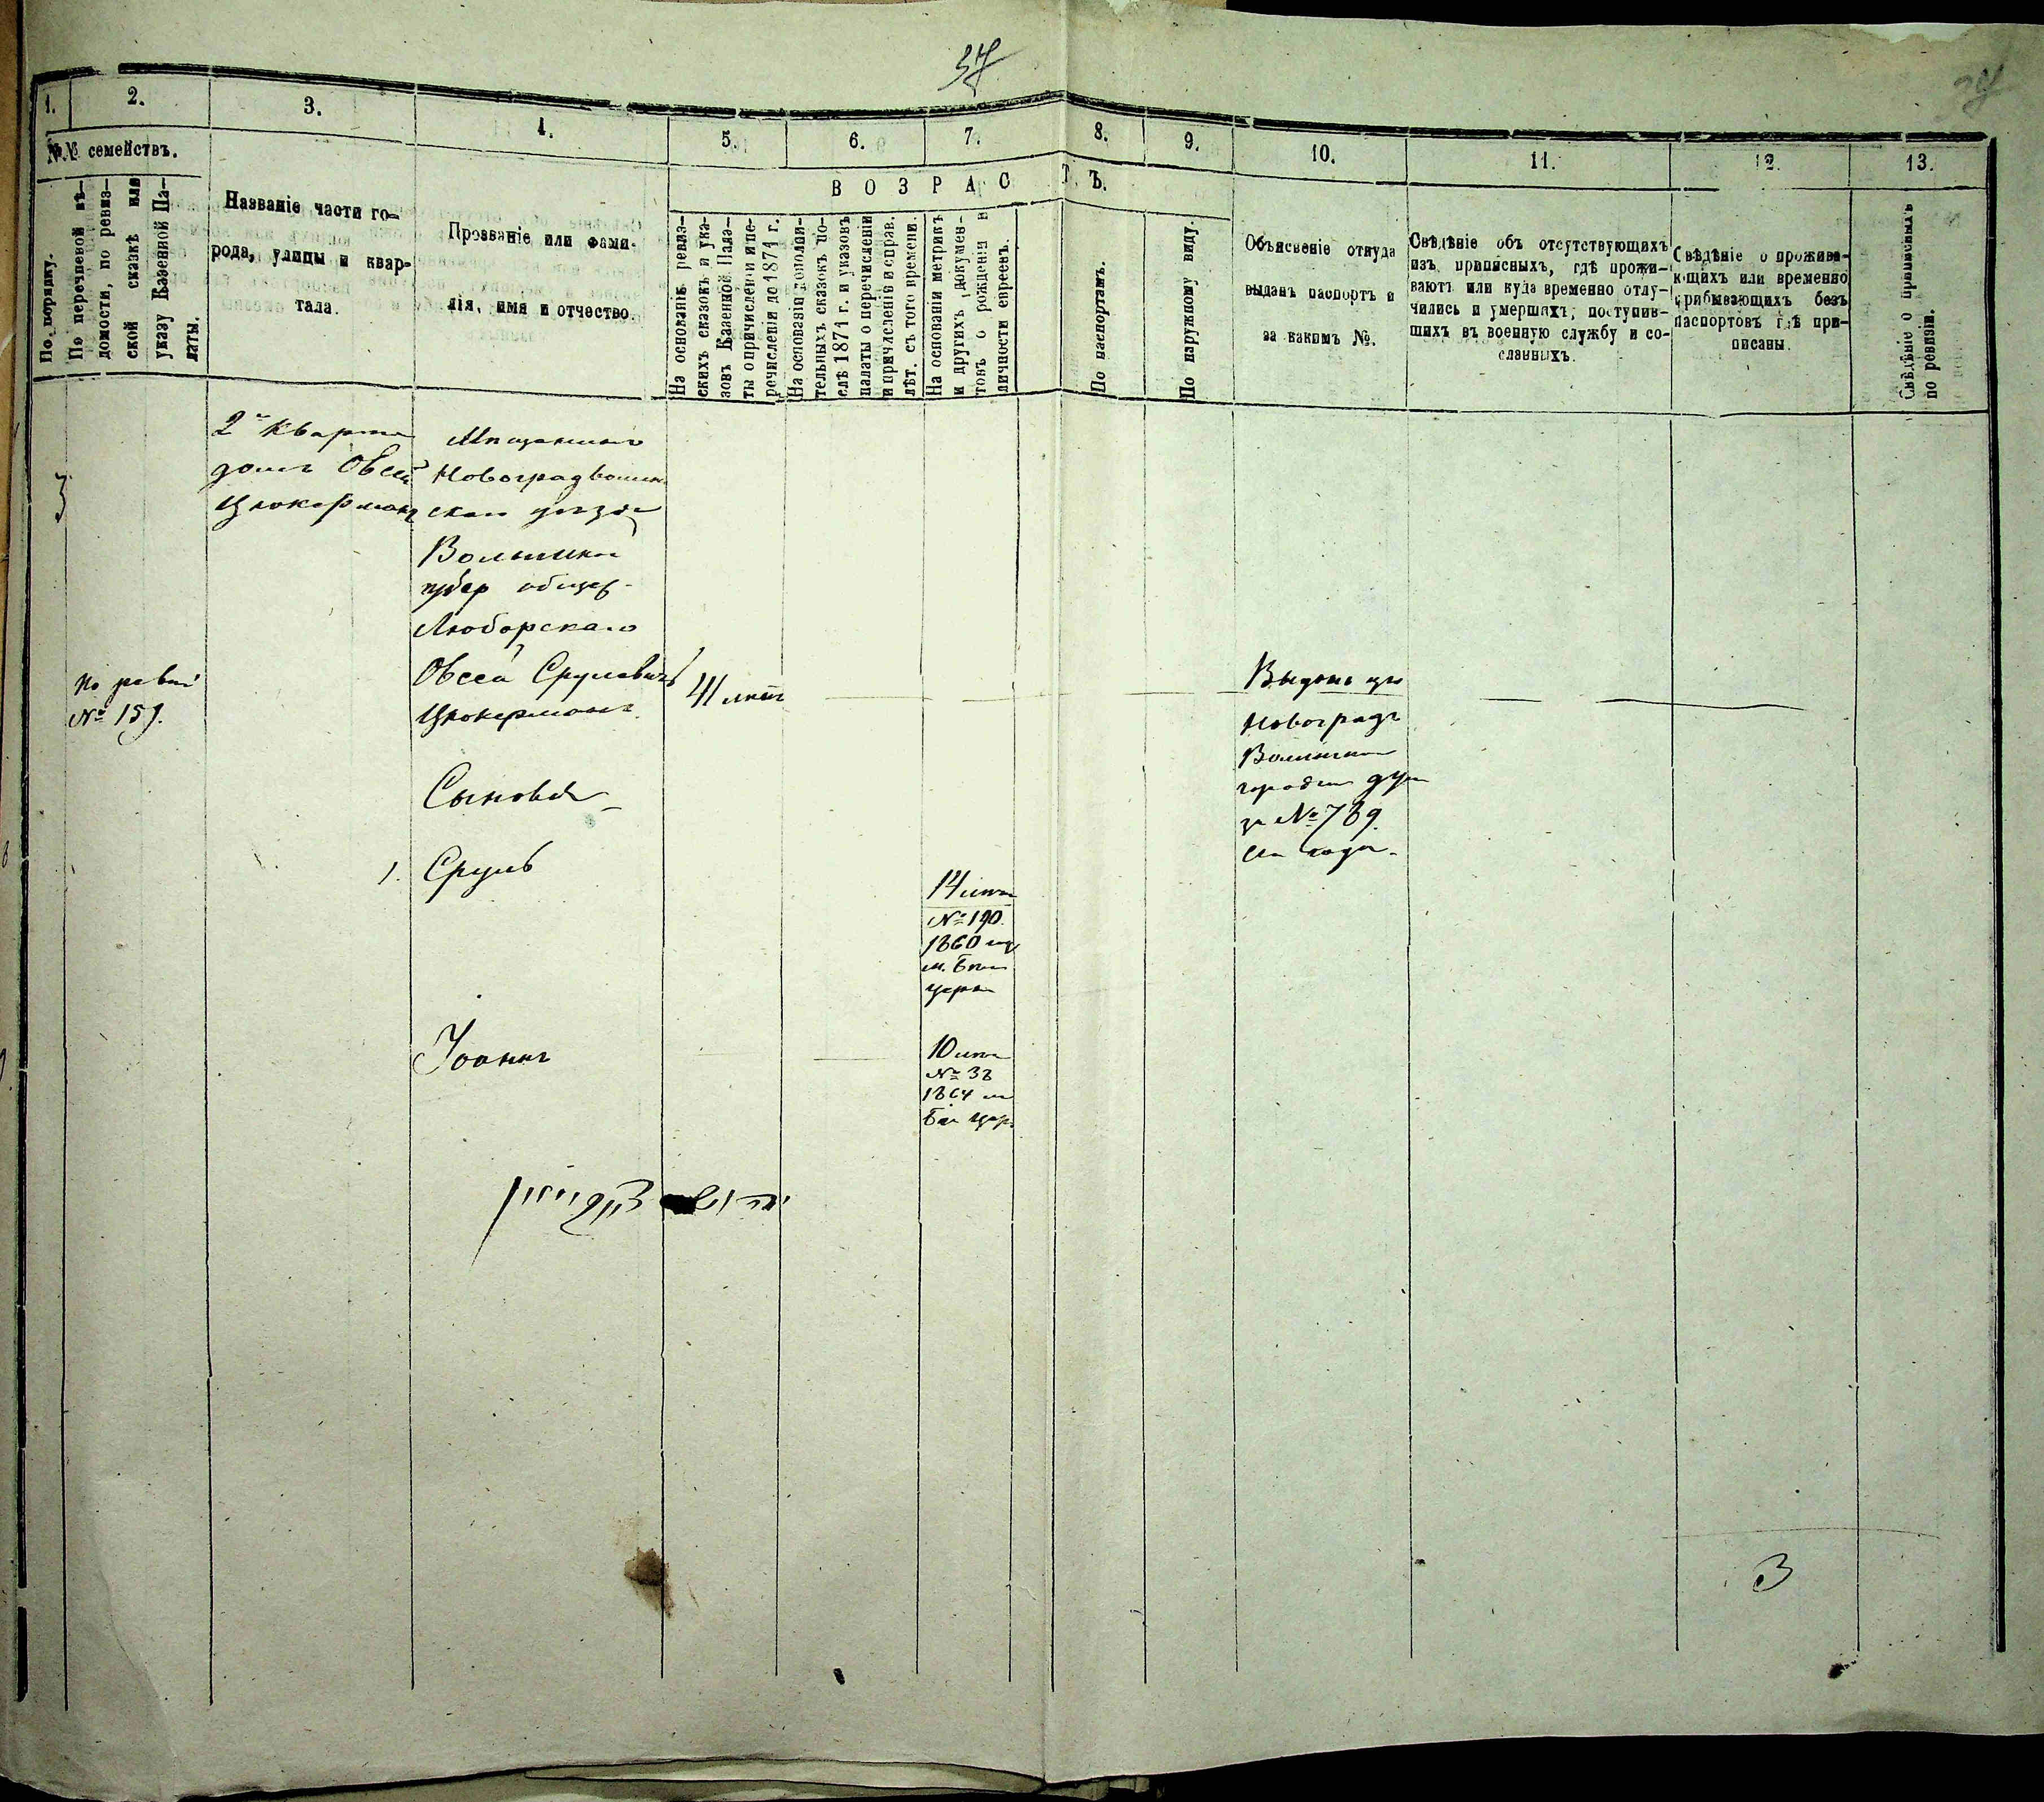 37
1.
2.
3.
4.
5.
6.
7.
8.
9.
10.
11.
12.
13.
№№ семействъ.
ВОЗРАСТЪ.
По порядку.
По перечневой вѣ-
домости, по ревиз-
ской сказкѣ или
указу Казенной Па-
латы.
Названіе части го-
рода, улицы и квар-
тала.
Прозваніе или фами-
лія, имя и отчество.
На основаніи ревиз-
скихъ сказокъ и ука-
зовъ Казенной Пала-
ты о причислен и и пе-
речисленіи до 1871 г.
На основаніи дополни-
тельныхъ сказокъ по-
слѣ 1871 г. и указовъ
палаты о перечисленіи
и причисленіи и справ.
лѣт. съ того времени.
На основаніи метрикъ
и другихъ докумен-
товъ о рожденіи и
личности евреевъ.
По паспортамъ.
По наружному виду.
Объясненіе откуда
выданъ паспортъ и
за какимъ №.
Свѣдѣніе объ отсутствующихъ
изъ приписныхъ, гдѣ прожи-
ваютъ или куда временно отлу-
чились и умершихъ; поступив-
шихъ въ военную службу и со-
сланныхъ.
Свѣдѣніе о прожива-
ющихъ или временно
прибывающихъ безъ
паспортовъ гдѣ при-
писаны.
Свѣдѣніе о приписныхъ
по ревизіи.
3
2й Кварта
домъ Овсей
Цюкерманъ
Мѣщанинъ
Новоградволин
скаго уѣзда
Волынской
губер общес
Люборскаго
По реви
№ 159.
Овсей Срулевичъ
Цюкерманъ
41 лѣтъ
Выданъ изъ
Новоградъ
Волынской
городск дум
за № 789.
Сыновья
1. Сруль
14 лѣтъ
№ 190
1860 год
м. Бѣла
церк
Іоаннъ
10 лѣтъ
№ 38
1864
Бѣл Церк.
צוקרמאן
3